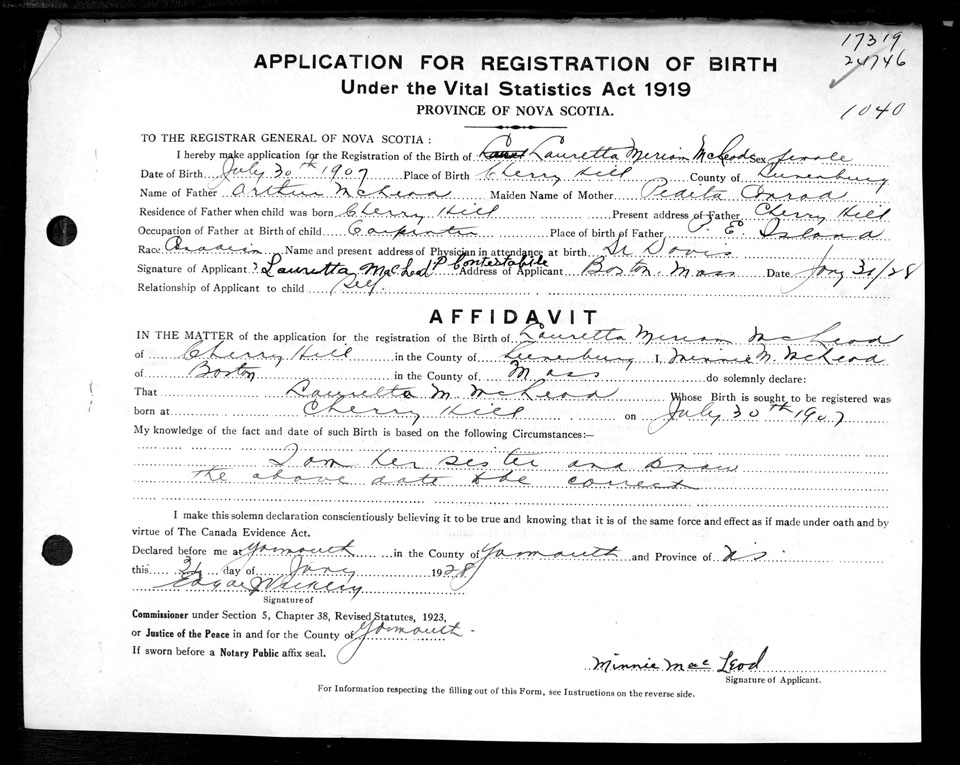 17319
24746
1040
APPLICATION FOR REGISTRATION OF BIRTH
Under the Vital Statistics Act 1919
PROVINCE OF NOVA SCOTIA.
TO THE REGISTRAR GENERAL OF NOVA SCOTIA :
I hereby make application for the Registration of the Birth of Lauretta Meriam McLeod Sex female
Date of Birth July 30th 1907 Place of Birth Cherry Hill County of Lunenburg
Name of Father Arthur McLeod Maiden Name of Mother Conrad
Residence of Father when child was born Cherry Hill Present address of Father Cherry Hill
Occupation of Father at Birth of child Carpenter Place of birth of Father P. E. Island
Race Canadian Name and present address of Physician in attendance at birth Dr Davis
Signature of Applicant. Lauretta MacLeod P Contestabile Address of Applicant Boston Mass Date Jany 31/28
Relationship of Applicant to child Self
AFFIDAVIT
IN THE MATTER of the application for the registration of the Birth of Lauretta Meriam McLeod
of Cherry Hill in the County of Lunenburg I, Minnie M. McLeod
of Boston in the County of Mass do solemnly declare:
That Lauretta M. McLeod Whose Birth is sought to be registered was
born at Cherry Hill on July 30th 1907
My knowledge of the fact and date of such Birth is based on the following Circumstances:—
I am her sister and know
the above date to be correct
I make this solemn declaration conscientiously believing it to be true and knowing that it is of the same force and effect as if made under oath and by
virtue of The Canada Evidence Act.
Declared before me at Yarmouth in the County of Yarmouth and Province of N.S.
this 31 day of Jany 1928
Signature of
Commissioner under Section 5, Chapter 38, Revised Statutes, 1923,
or Justice of the Peace in and for the County of Yarmouth
If sworn before a Notary Public affix seal.
Minnie MacLeod
Signature of Applicant.
For Information respecting the filling out of this Form, see Instructions on the reverse side.